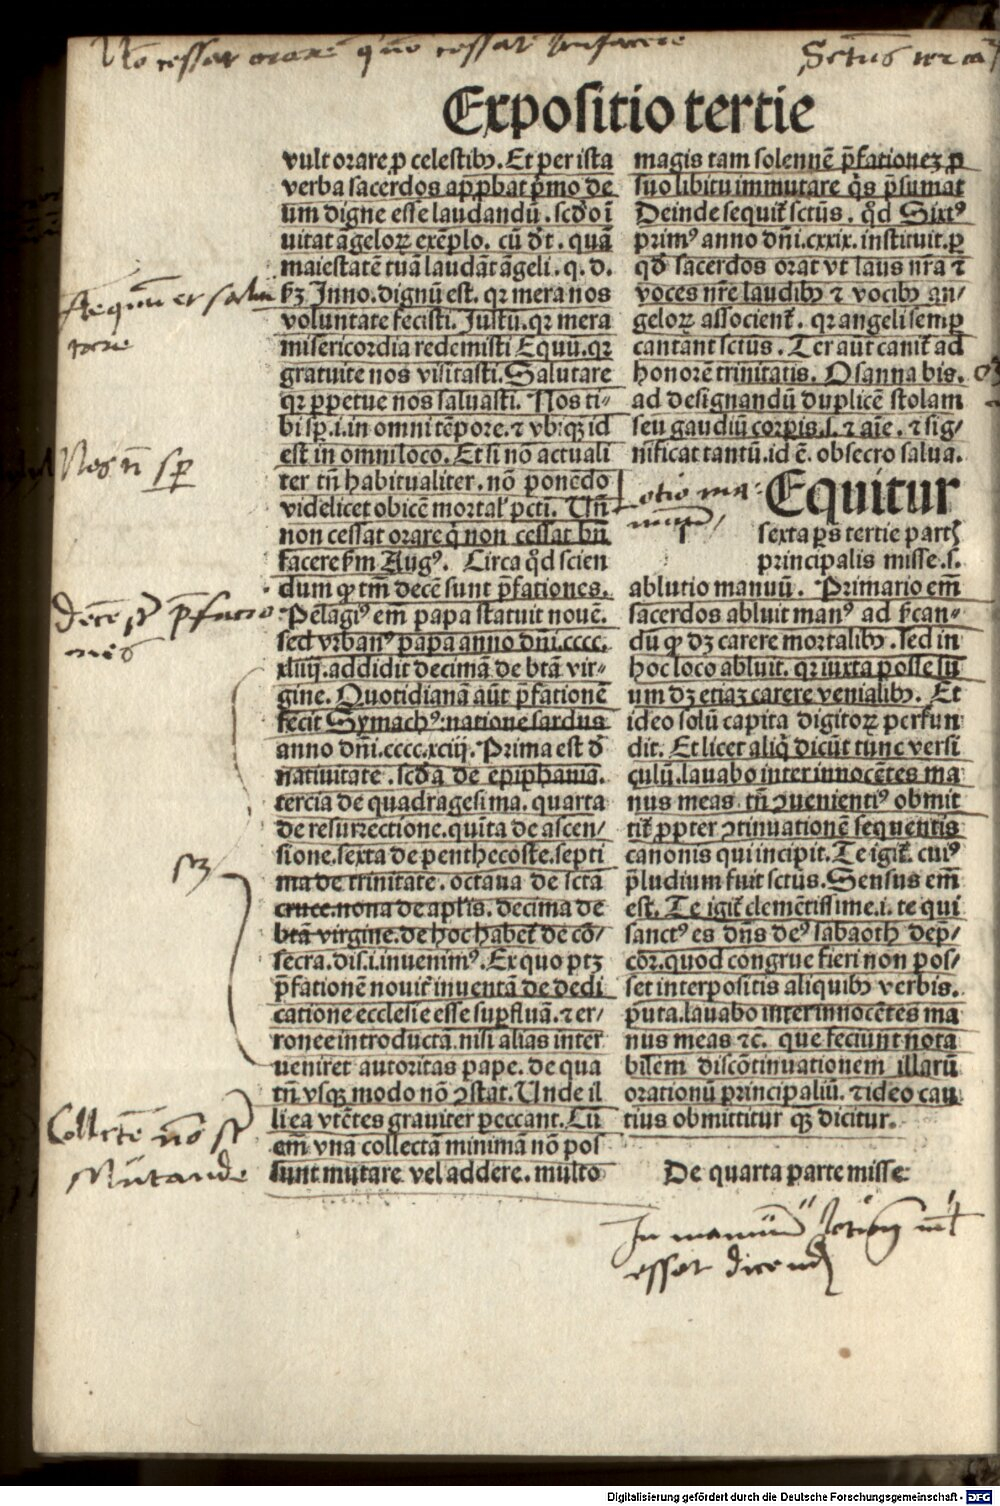 No cessat orare q' no cessat benefacere
Sctus ter ca
Expositio tertie
vult orare ꝓ celestibꝫ. Et per ista
verba sacerdos apꝓbat pͥmo de
um digne esse laudandū. scd̓o ī
uitat āgeloꝝ exēplo. cū dr̄t. quā
maiestatē tuā laudāt āgeli. q. d.
ẜꝫ Inno. dignū est. qꝛ mera nos
voluntate fecisti. Iustū. qꝛ mera
misericordia redemisti Equū. qꝛ
gratuite nos visitasti. Salutare
qꝛ ꝑpetue nos saluasti. Nos ti-
bi sꝑ .i. in omni tēpore. ⁊ vbiqꝫ id
est in omni loco. Et si nō actuali
ter tn̄ habitualiter. nō ponēdo
videlicet obicē mortaľ pcti. Vn̄
non cessat orare q̇ non cessat bn̄
facere ẜm Augꝰ. Circa qd̓ scien
dum ꝙ tm̄ decē sunt p̄fationes.
Pelagiꝰ em̄ papa statuit nouē.
sed vrbanꝰ papa anno dn̄i. cccc.
xliiij. addidit decimā de btā vir-
gine. Quotidianā aūt p̄fationē
fecit Symachꝰ natione sardus
anno dn̄i. cccc. xciij. Prima est d̓
natiuitate. scd̓a de epiphania.
tercia de quadragesima. quarta
de resurrectione. quīta de ascen/
sione. sexta de penthecoste. septi
ma de trinitate. octaua de scta
cruce. nona de aplis. decima de
btā virgine. de hoc habet̄ de cō/
secra. dis. i. inuenimꝰ. Ex quo ptꝫ
p̄fationē nouit̄ inuentā de dedi
catione ecclesie esse suꝑfluā. ⁊ er-
ronee introductā. nisi alias inter
ueniret autoritas pape. de qua
tn̄ vsqꝫ modo nō ꝯstat. Unde il
li ea vtētes grauiter peccant. Cū
em̄ vnā collectā minimā nō pos
sunt mutare vel addere. multo
magis tam solennē p̄fationeꝫ ꝓ
suo libitu immutare q̇s p̄sumat
Deinde sequit̄ sctūs. qd̓ Sixtꝰ
primꝰ anno dn̄i. cxxix. instituit. ꝑ
qd̓ sacerdos orat vt laus nr̄a ⁊
voces nr̄e laudibꝫ ⁊ vocibꝫ an/
geloꝝ associent̄. qꝛ angeli semꝑ
cantant sctūs. Ter aūt canit̄ ad
honorē trinitatis. Osanna bis.
ad designandū duplicē stolam
seu gaudiū corꝑis .s. ⁊ aīe. ⁊ sig-
nificat tantū. id ē. obsecro salua.
Equitur
sexta ꝑs tertie partꝭ
principalis misse .s.
ablutio manuū. Primario em̄
sacerdos abluit manꝰ ad ẜcan-
dū ꝙ dꝫ carere mortalibꝫ. sed in
hoc loco abluit. qꝛ iuxta posse su
um dꝫ etiaꝫ carere venialibꝫ. Et
ideo solū capita digitoꝝ perfun
dit. Et licet aliq̇ dicūt tunc versi
culū. lauabo inter innocētes ma
nus meas. tn̄ ꝯuenientiꝰ obmit
tit̄ ꝓpter ꝯtinuationē sequentis
canonis qui incipit. Te igit̄. cuiꝰ
p̄ludium fuit sctūs. Sensus em̄
est. Te igit̄ clemētissime .i. te qui
sanctꝰ es dn̄s deꝰ sabaoth dep̄/
cōr. quod congrue fieri non pos/
set interpositis aliquibꝫ verbis.
puta. lauabo inter innocētes ma
nus meas ⁊c̄. que feciunt nota
bilem discōtinuationem illarū
orationū principaliū. ⁊ ideo cau
tius obmittitur qꝫ dicitur.
De quarta parte misse
Equum et salu
tare
Nos n̄ sꝑ
Decē st p̄facio
nes
scꝫ
Collectē nō st
Mutande
lotio ma
nuum
esset dicend
Digitalisierung gefördert durch die Deutsche Forschungsgemeinschaft - DFG